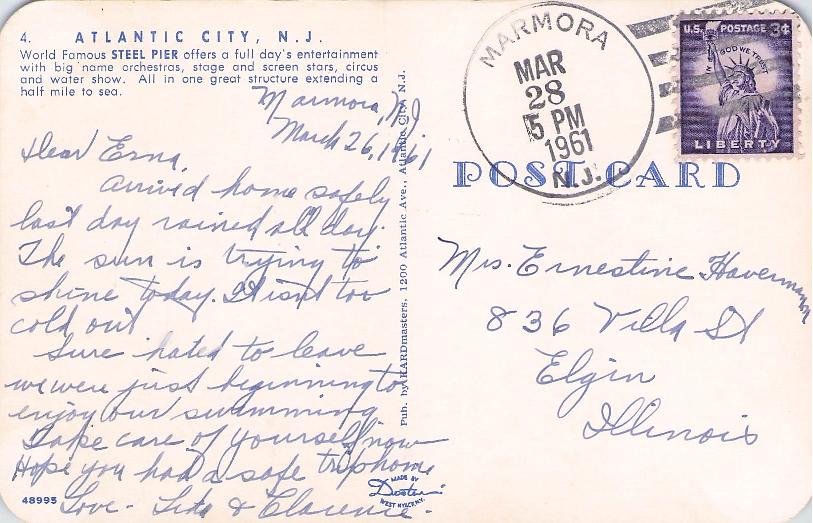 4. ATLANTIC CITY, N.J.
World Famous STEEL PIER offers a full day's entertainment
with big name orchestras, stage and screen stars, circus
and water show. All in one great structure extending a
half mile to sea.
Marmora, NJ
March 26, 1961
Dear Erna,
Arrived home safely
last day rained all day.
The sun is trying to
shine today. It isn't too
cold out
Sure hated to leave
we were just beginning to
enjoy our swimming
Take care of yourself now
Hope you had a safe trip home
Love - & Clarence.
48995
Pub. by KARDmasters, 1200 Atlantic Ave., Atlantic City N.J.
MADE BY
Dexter
WEST NYACK N.Y.
MARMORA
MAR
28
5 PM
1961
N.J.
U.S. POSTAGE 3¢
IN GOD WE TRUST
LIBERTY
POST CARD
Mrs. Ernestine Havermann
836 Villa St
Elgin
Illinois